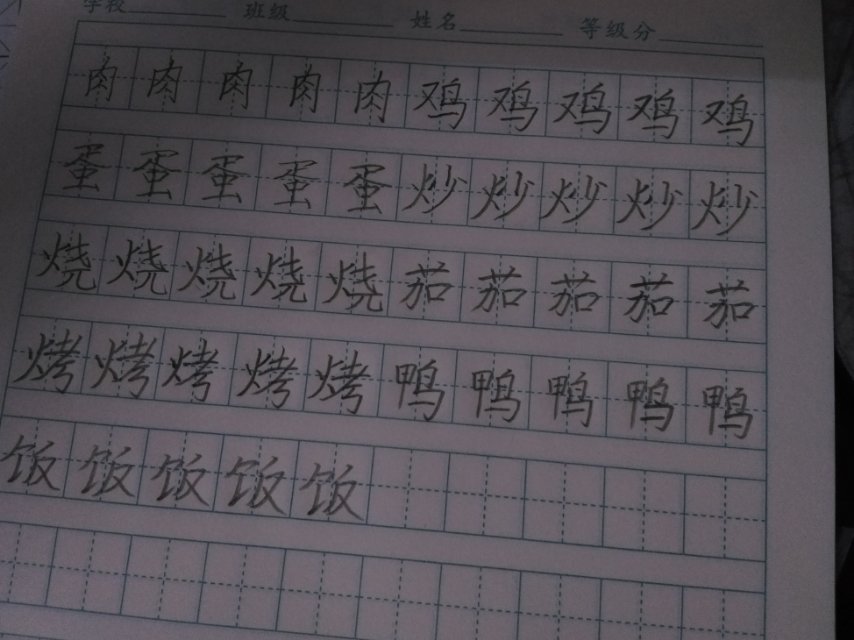 学校 班级 姓名 等级分
肉肉肉肉肉鸡鸡鸡鸡鸡
蛋蛋蛋蛋蛋炒炒炒炒炒
烧烧烧烧烧茄茄茄茄茄
烤烤烤烤烤鸭鸭鸭鸭鸭
饭饭饭饭饭